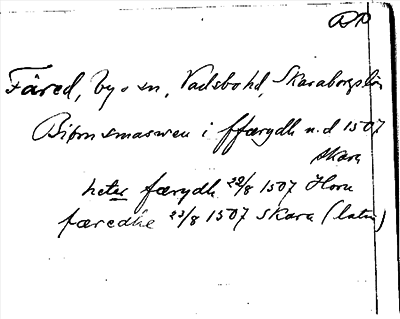 DN
Färed, by o sn, Vadsbo hd, Skaraborgs län
Biörn smaswen i ffærydh u.d 1507
Skara
heter færydh 22/8 1507 Horn
færedhe 23/8 1507 Skara (latin)